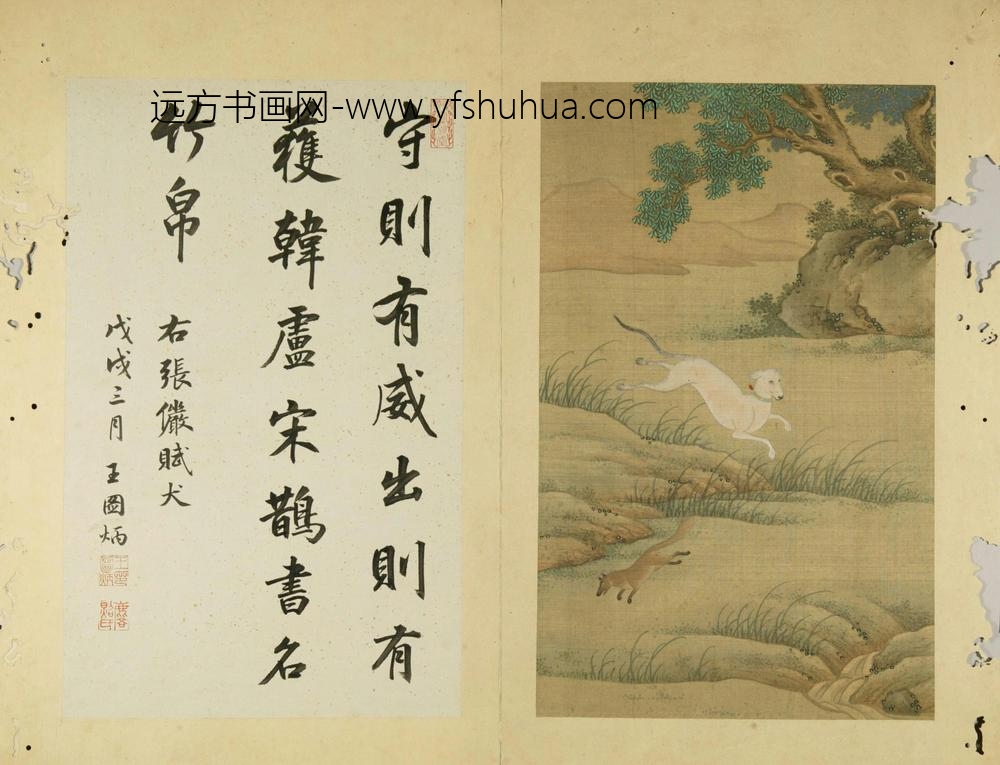 远方书画网-www.yfshuhua.com
守則有威出則有
獲韓盧宋鵲書名
竹帛
右張儼賦犬
戊戌三月 王圖炳